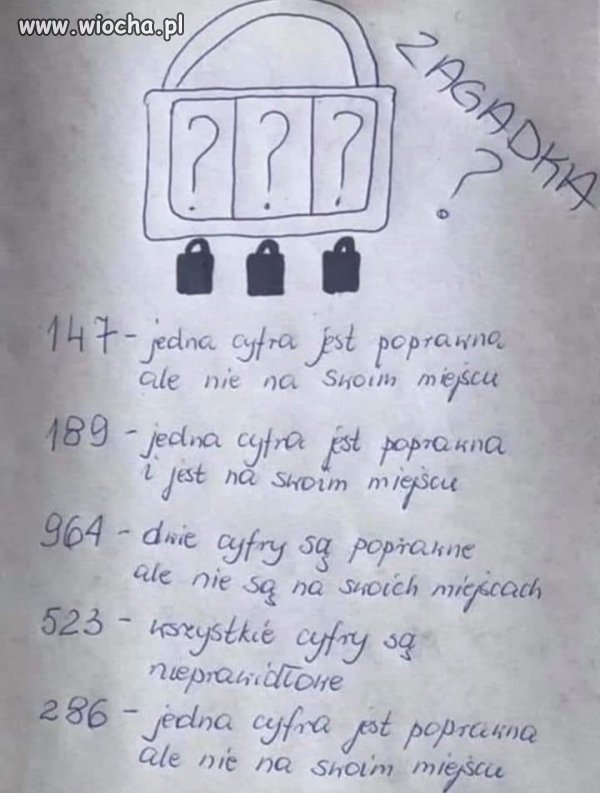 www.wiocha.pl
ZAGADKA
?
? ? ?
147 - jedna cyfra jest poprawna
ale nie na swoim miejscu
189 - jedna cyfra jest poprawna
i jest na swoim miejscu
964 - dwie cyfry są poprawne
ale nie są na swoich miejscach
523 - wszystkie cyfry są
nieprawidłowe
286 - jedna cyfra jest poprawna
ale nie na swoim miejscu